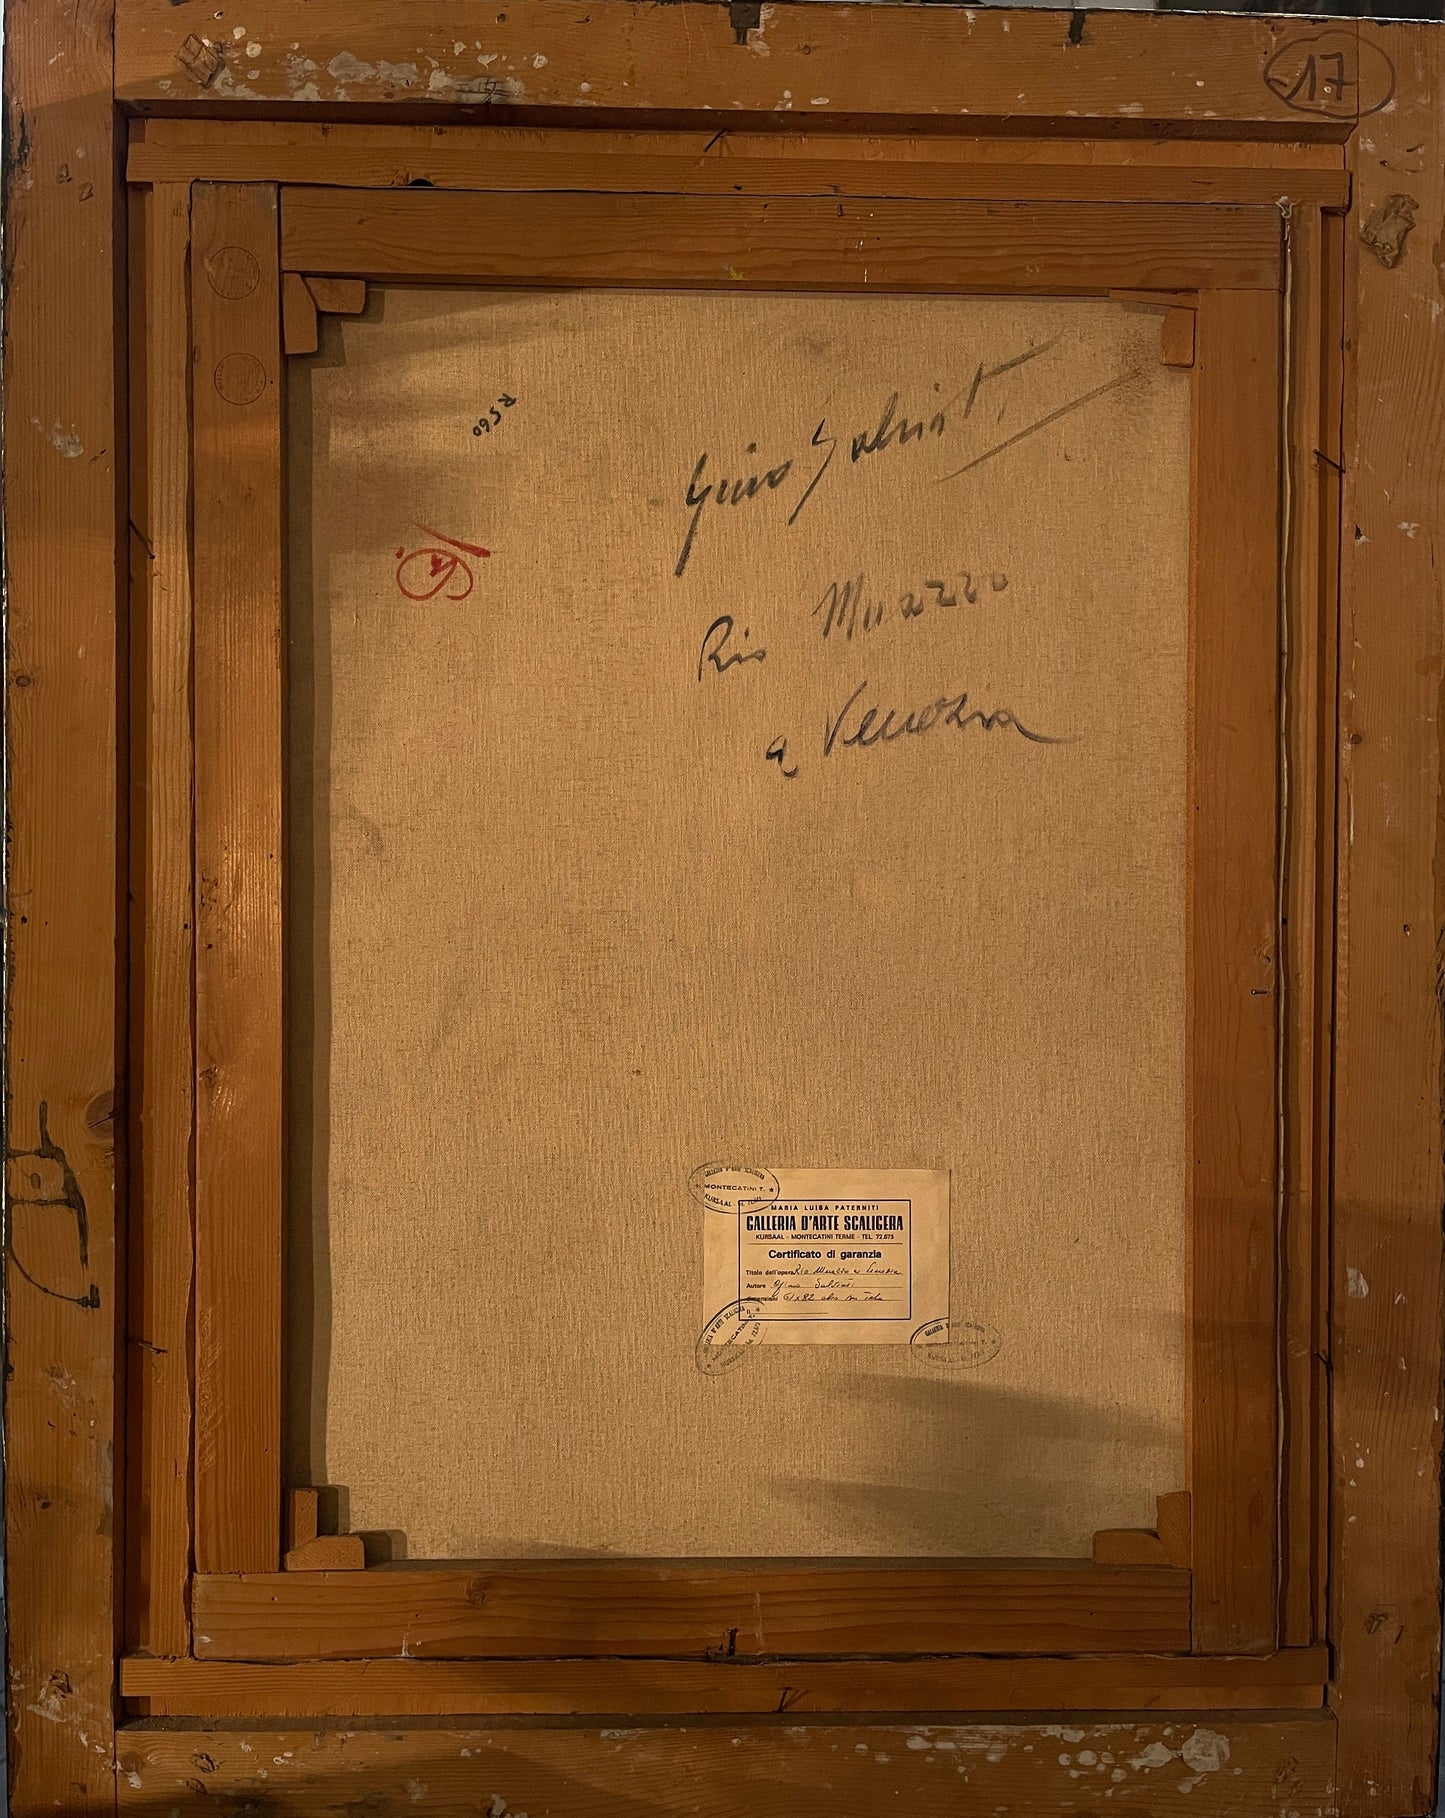 17
R560
Gino Salviati
Rio Muazzo
a Venezia
GALLERIA D'ARTE SCALIGERA
MONTECATINI T.
KURSAAL
MARIA LUISA PATERNITI
GALLERIA D'ARTE SCALIGERA
KURSAAL - MONTECATINI TERME - TEL. 72.875
Certificato di garanzia
Titolo dell'opera Rio Muazzo a Venezia
Autore Gino Salviati
dimensioni 61x82 olio su tela